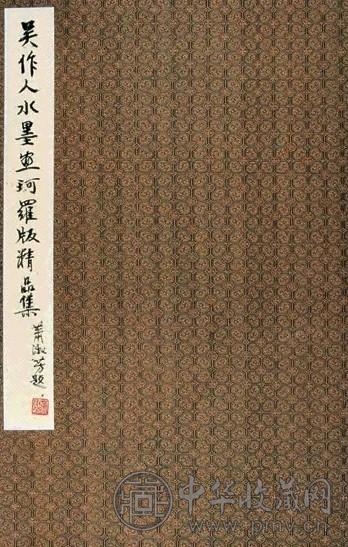 吴作人水墨画珂罗版精品集
萧淑芳题
中华收藏网
www.pmv.cn